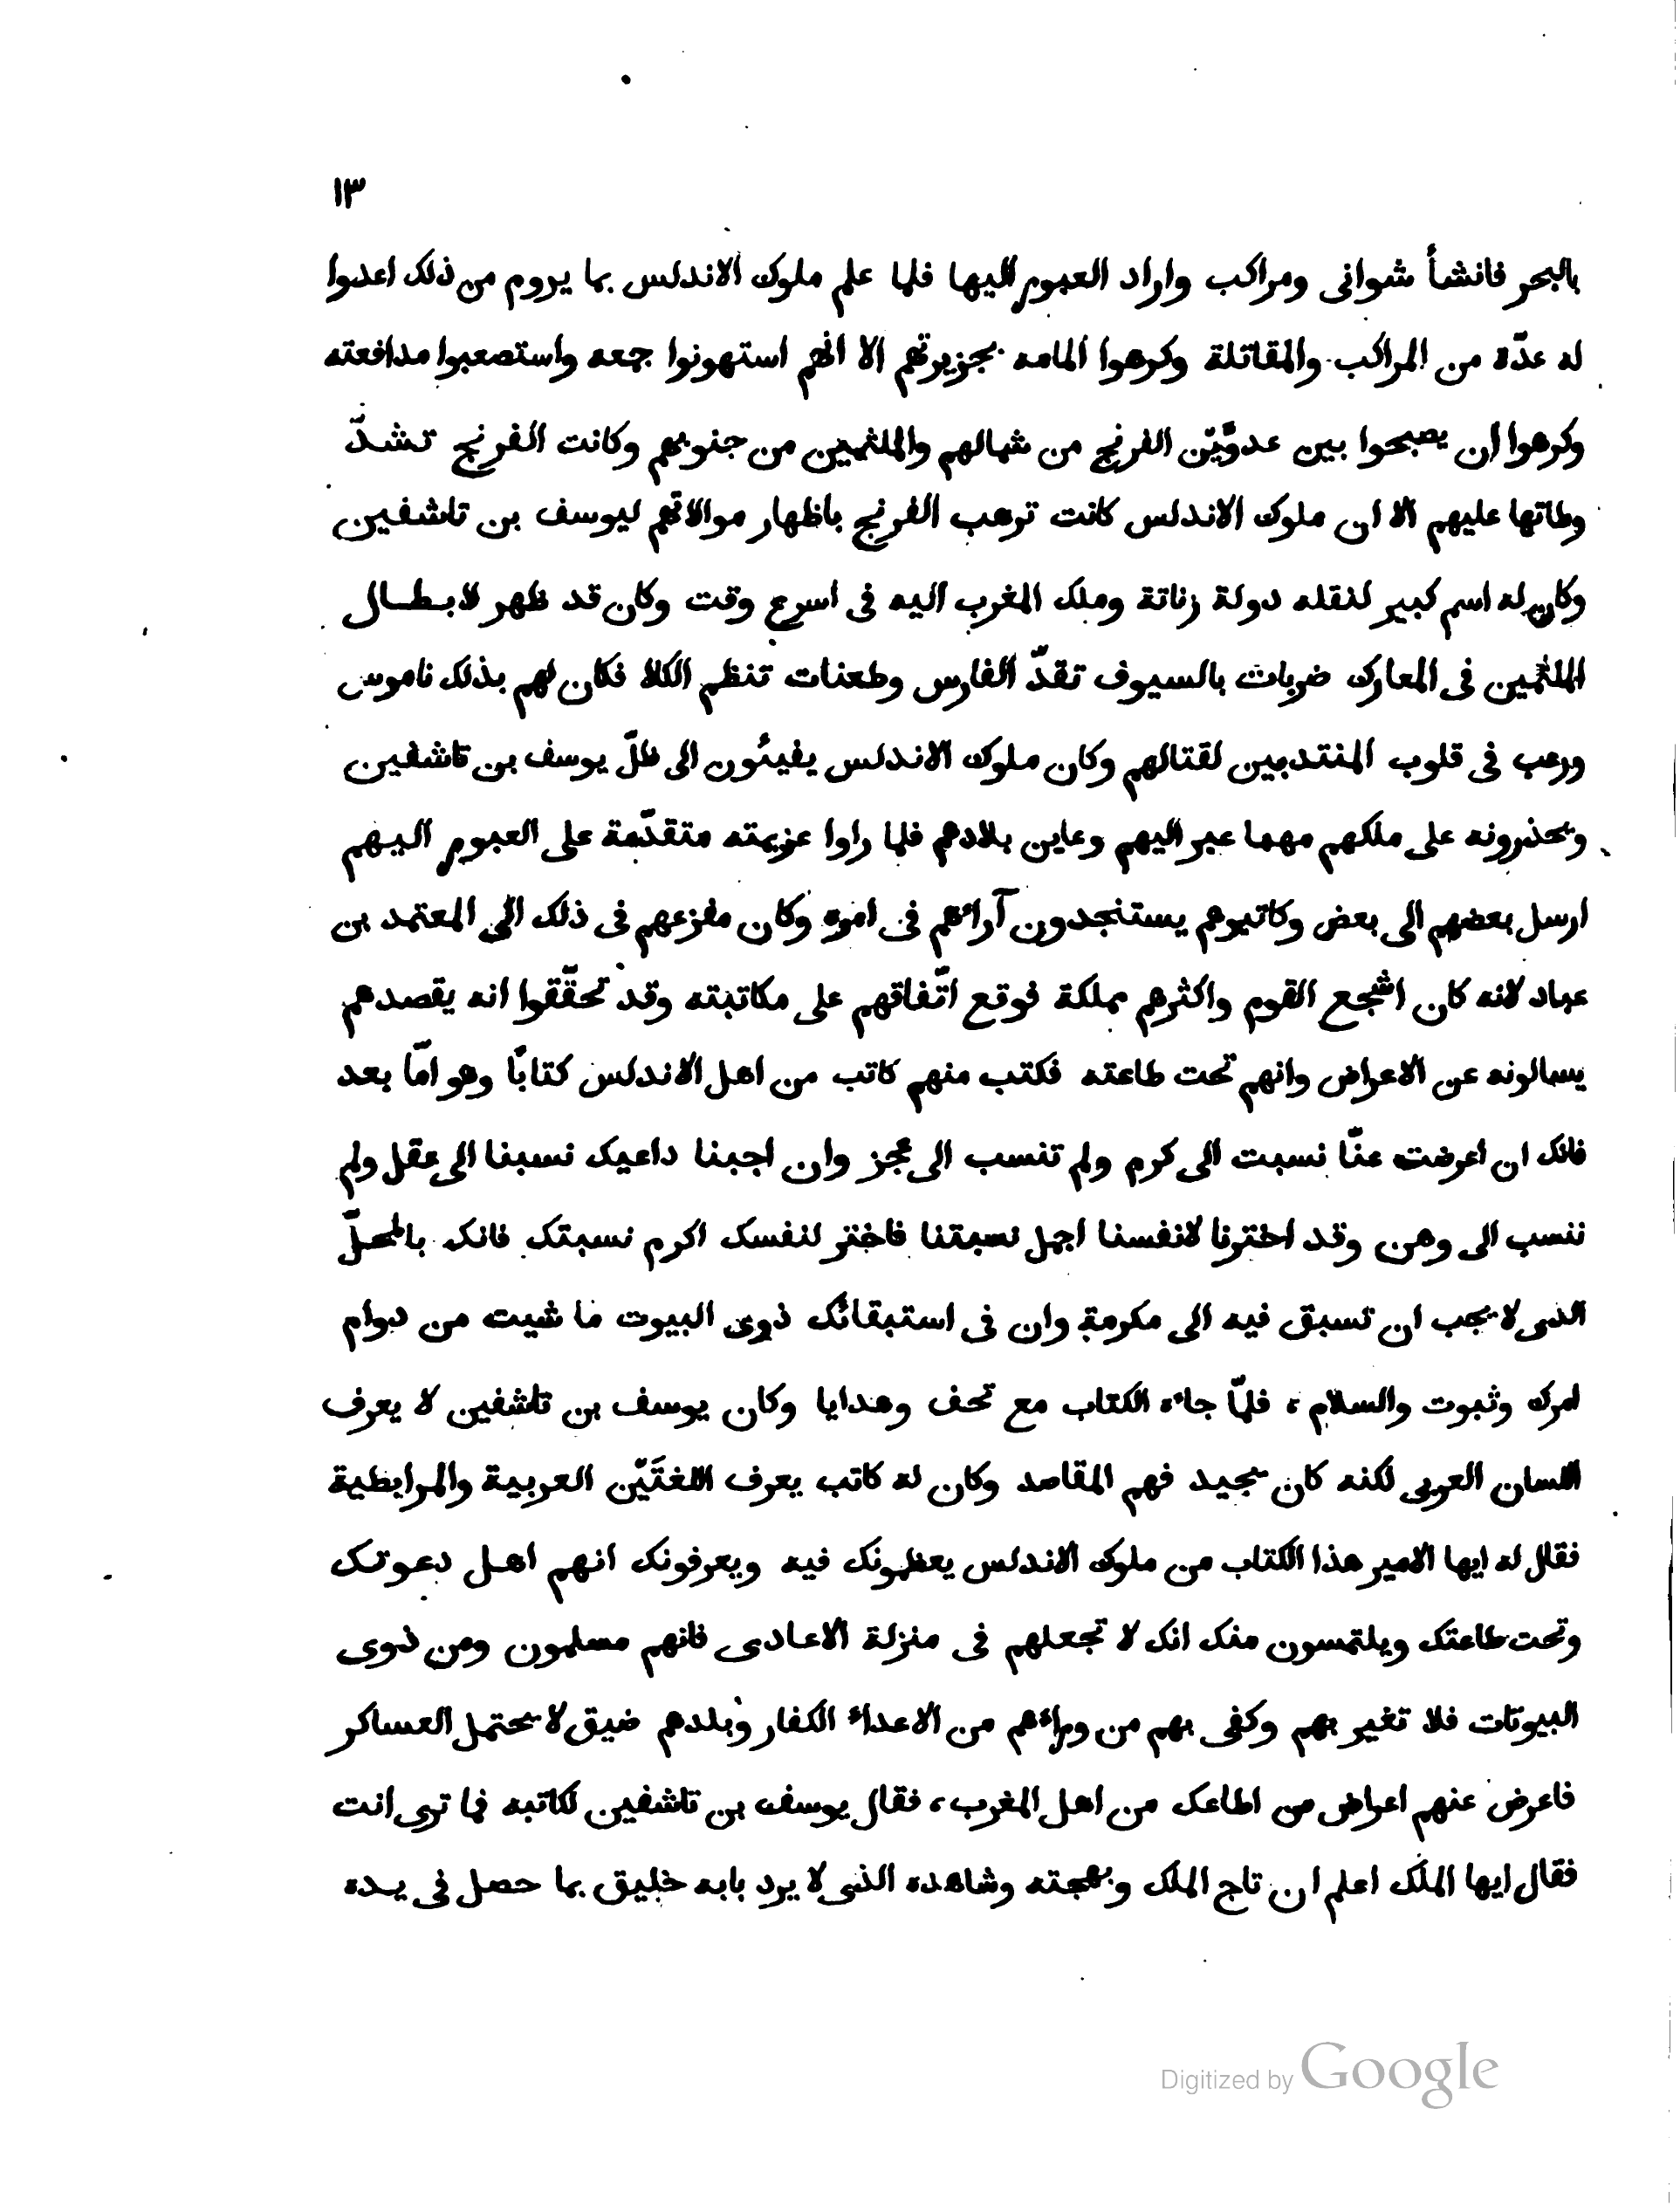 ١٣
بالبحر فانشأ شوانى ومراكب واراد العبور اليها فلما علم ملوك الاندلس بما يروم من ذلك اعدوا
له عدّة من المراكب والمقاتلة وكرهوا المامه بجزيرتهم الا انهم استهونوا جمعه واستصعبوا مدافعته
وكرهوا ان يصبحوا بين عدوَّيْن الفرنج من شمالهم والملثمين من جنوبهم وكانت الفرنج تشدّ
وطاتها عليهم الا ان ملوك الاندلس كانت ترهب الفرنج باظهار موالاتهم ليوسف بن تاشفين
وكان له اسم كبير لنقله دولة زناتة وملك المغرب اليه فى اسرع وقت وكان قد ظهر لابطال
الملثمين فى المعارك ضربات بالسيوف تقدّ الفارس وطعنات تنظم الكلا فكان لهم بذلك ناموس
ورعب فى قلوب المنتدبين لقتالهم وكان ملوك الاندلس يفيئون الى ظلّ يوسف بن تاشفين
ويحذرونه على ملكهم مهما عبر اليهم وعاين بلادهم فلما راوا عزيمته متقدّمة على العبور اليهم
ارسل بعضهم الى بعض وكاتبوهم يستنجدون آرائهم فى امره وكان مفزعهم فى ذلك الى المعتمد بن
عباد لانه كان اشجع القوم واكثرهم مملكة فوقع اتّفاقهم على مكاتبته وقد تحقّقوا انه يقصدهم
يسالونه عن الاعراض وانهم تحت طاعته فكتب منهم كاتب من اهل الاندلس كتابًا وهو امّا بعد
فانك ان اعرضت عنّا نسبت الى كرم ولم تنسب الى عجز وان اجبنا داعيك نسبنا الى عقل ولم
ننسب الى وهن وقد اخترنا لانفسنا اجمل نسبتنا فاختر لنفسك اكرم نسبتك فانك بالمحلّ
الذى لا يجب ان تسبق فيه الى مكرمة وان فى استبقائك ذوى البيوت ما شيت من دوام
لمرك وثبوت والسلام، فلمّا جاءه الكتاب مع تحف وهدايا وكان يوسف بن تاشفين لا يعرف
اللسان العربى لكنه كان يجيد فهم المقاصد وكان له كاتب يعرف اللغتَيْن العربية والمرابطية
فقال له ايها الامير هذا الكتاب من ملوك الاندلس يعظمونك فيه ويعرفونك انهم اهل دعوتك
وتحت طاعتك ويلتمسون منك انك لا تجعلهم فى منزلة الاعادى فانهم مسلمون ومن ذوى
البيوتات فلا تغير بهم وكفى بهم من ورائهم من الاعداء الكفار وبلدهم ضيق لا يحتمل العساكر
فاعرض عنهم اعراض من اطاعك من اهل المغرب، فقال يوسف بن تاشفين لكاتبه فما ترى انت
فقال ايها الملك اعلم ان تاج الملك وبهجته وشاهده الذى لا يرد بابه خليق بما حصل فى يده
Digitized by Google